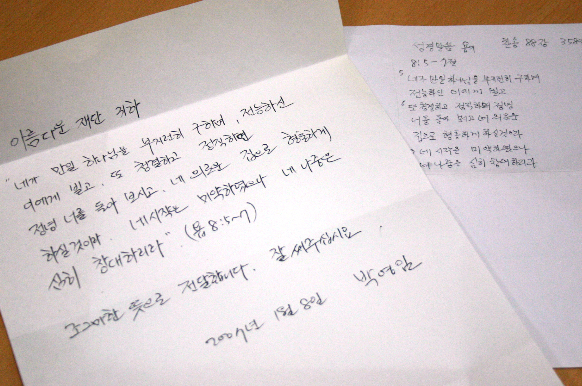 아름다운 재단 귀하
"네가 만일 하나님을 부지런히 구하며, 전능하신
이에게 빌고, 또 청결하고 정직하면
정녕 너를 돌아 보시고, 네 의로운 집으로 형통하게
하실것이라. 네시작은 미약하였으나 네 나중은
심히 창대하리라" (욥 8:5~7)
조그마한 뜻으로 전달합니다. 잘 써주십시요.
2007년 1월 8일 박영일
욥
8:5-7절
네가 만일 하나님을 부지런히 구하며
전능하신 이에게 빌고
또 청결하고 정직하면 정녕
너를 돌아 보시고 네 의로운
집으로 형통하게 하실것이라
네 시작은 미약하였으나
네 나중은 심히 창대하리라